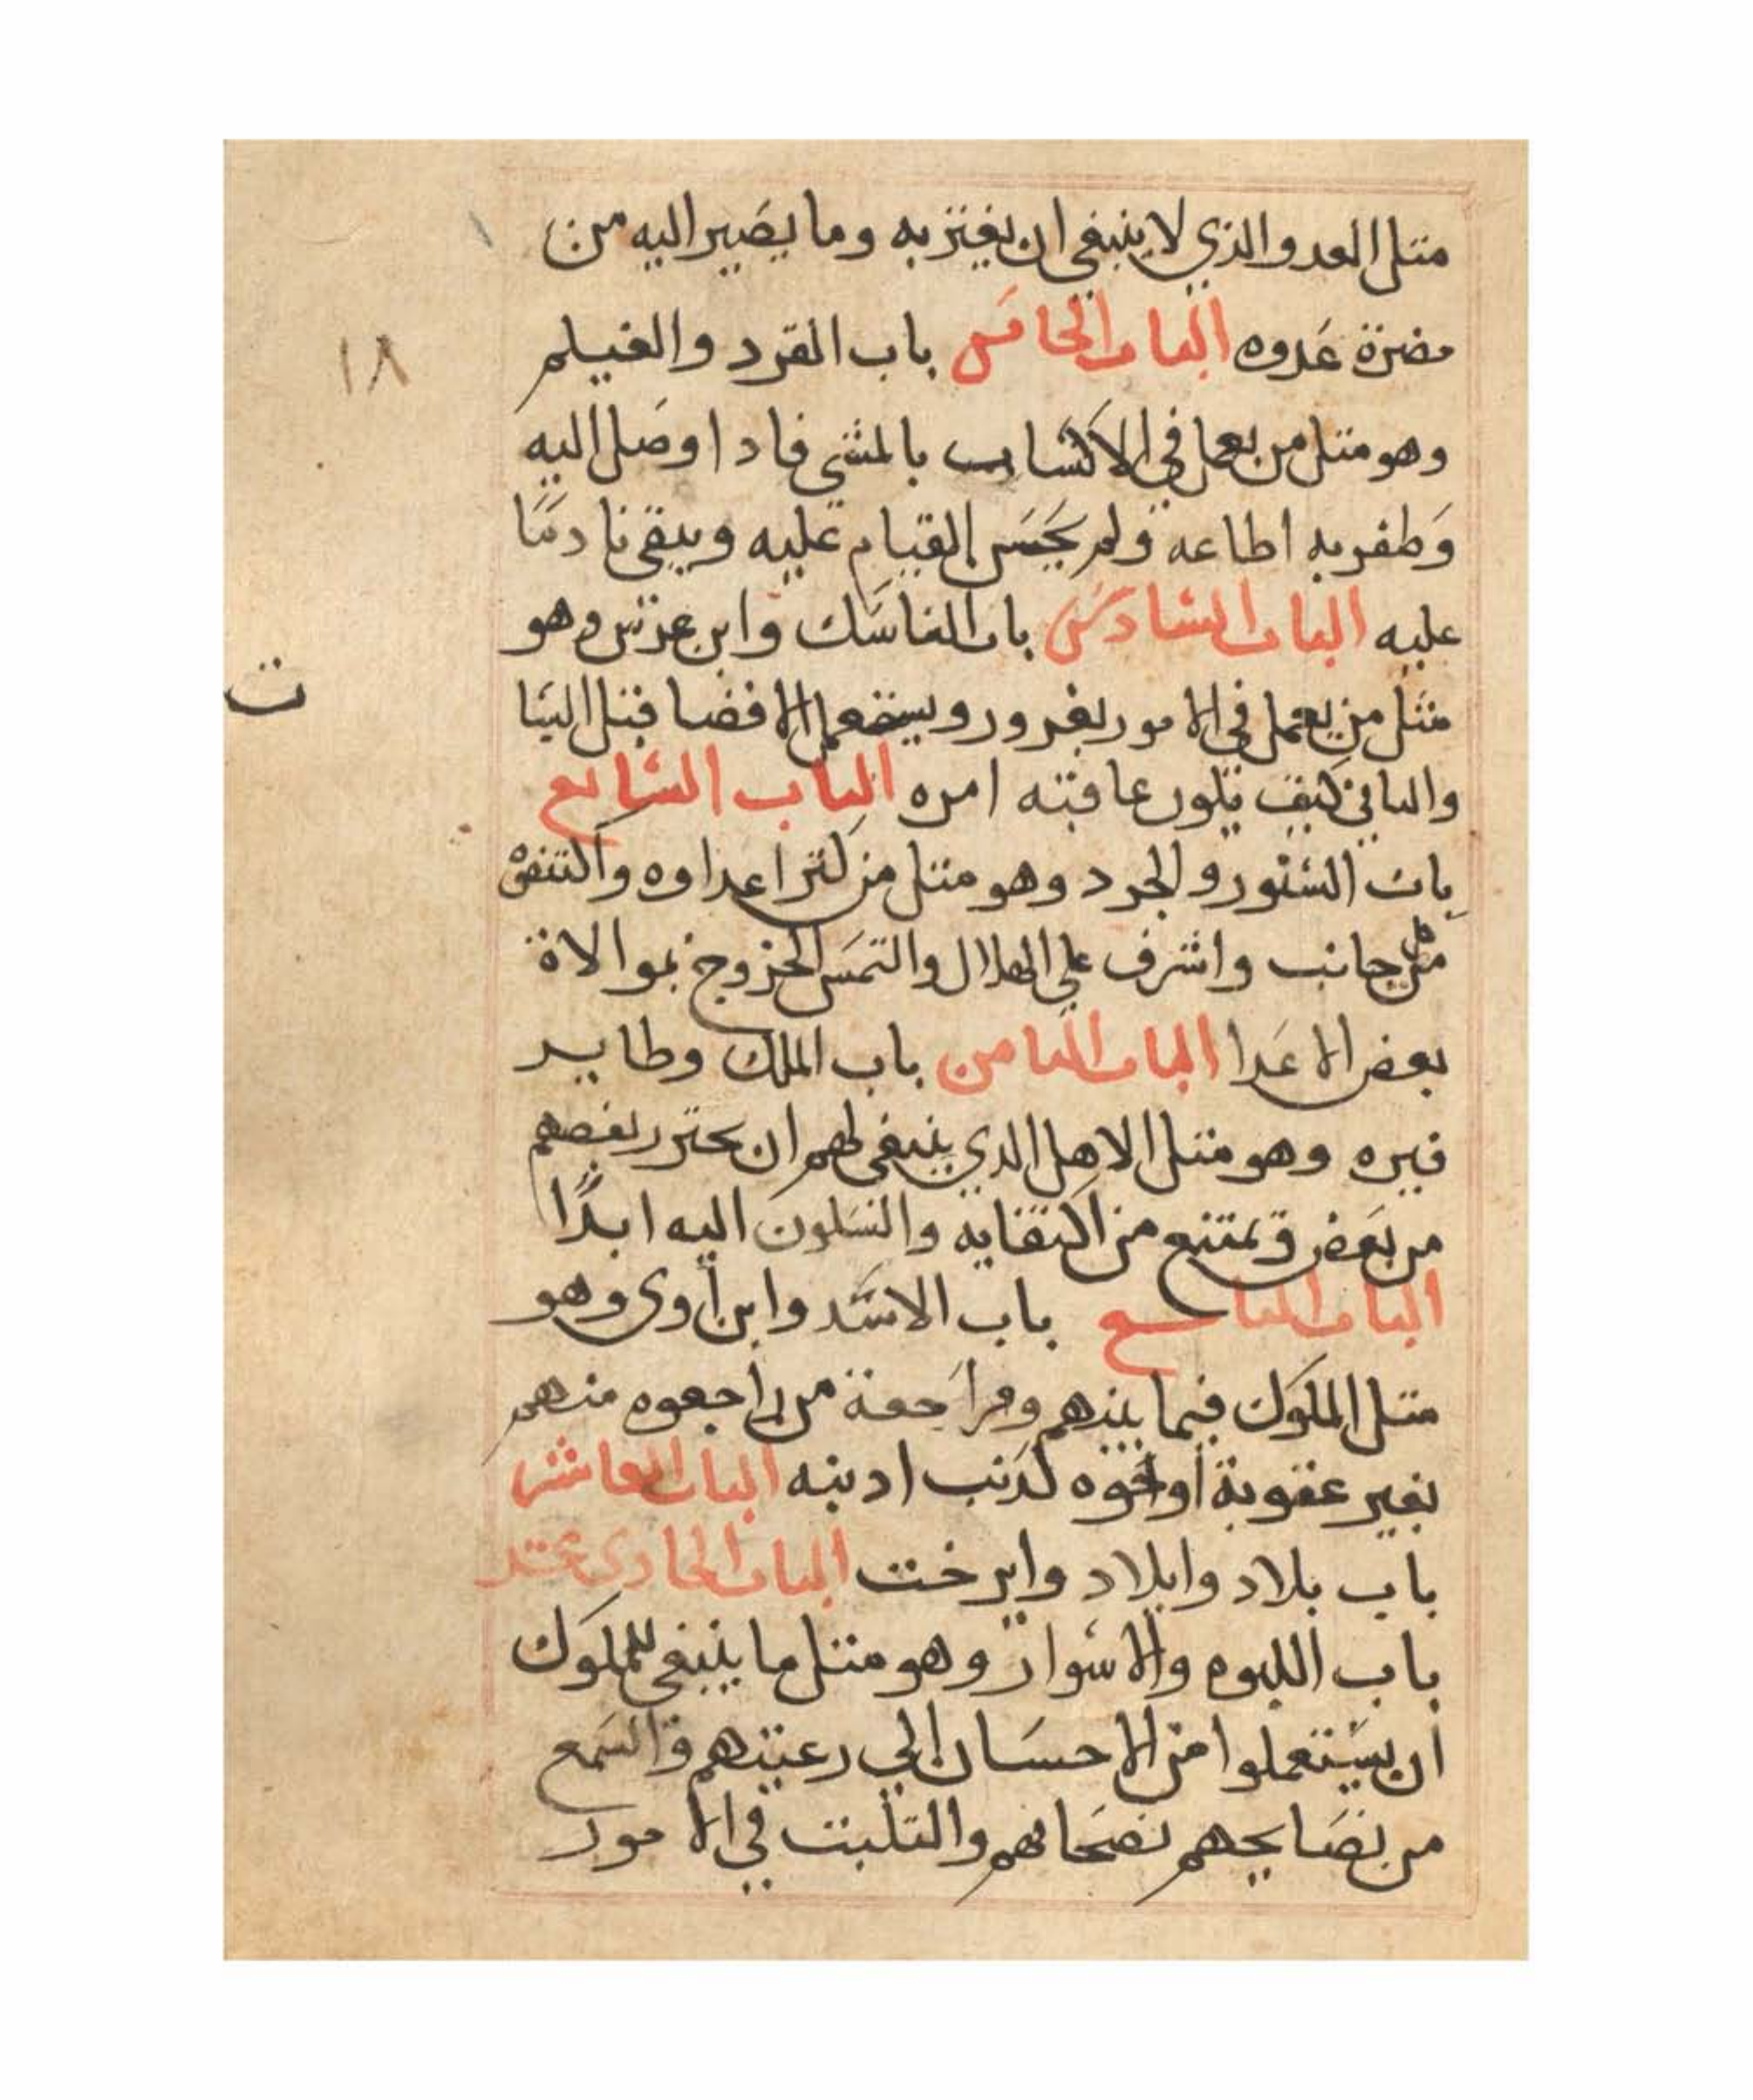 متل العدو الذي لا ينبغي ان يغتر به وما يصير اليه من
مضرة عدوه الباب الخامس باب القرد والغيلم
١٨
وهو متل من يعمل في الاكتساب بالمشي فادا وصل اليه
وظفر به اطاعه ولم يحسن القيام عليه ويبقى نادمًا
عليه الباب السادس باب الناسك وابن عرس وهو
مثل من يعمل في الامور بغرور ويستعمل الافضا قبل البيا
ت
والتاني كيف تكون عاقبته امره الباب السابع
باب السنور والجرد وهو متل من كتر اعداوه واكتنفوه
من كل جانب واشرف على الهلاك والتمس الخروج بموالاة
بعض الاعدا الباب التامن باب الملك وطاير
فيره وهو متل الاهل الدي ينبغي لهم ان يحترر بعضهم
من بعض وتمتنع من التقايه والسكون اليه ابدًا
الباب التاسع باب الاسد وابن أوى وهو
متل الملوك فيما بينهم ومراجعة من راجعوه منهم
بغير عقوبة أو نحوه لدنب ادنبه الباب العاشر
باب بلاد وابلاد وايرخت الباب الحادي عشر
باب اللبوه والاسوار وهو متل ما ينبغي للملوك
ان يستعملوا من الاحسان الي رعيتهم والسمع
من نصايحهم نصحاتهم والتثبت في الامور